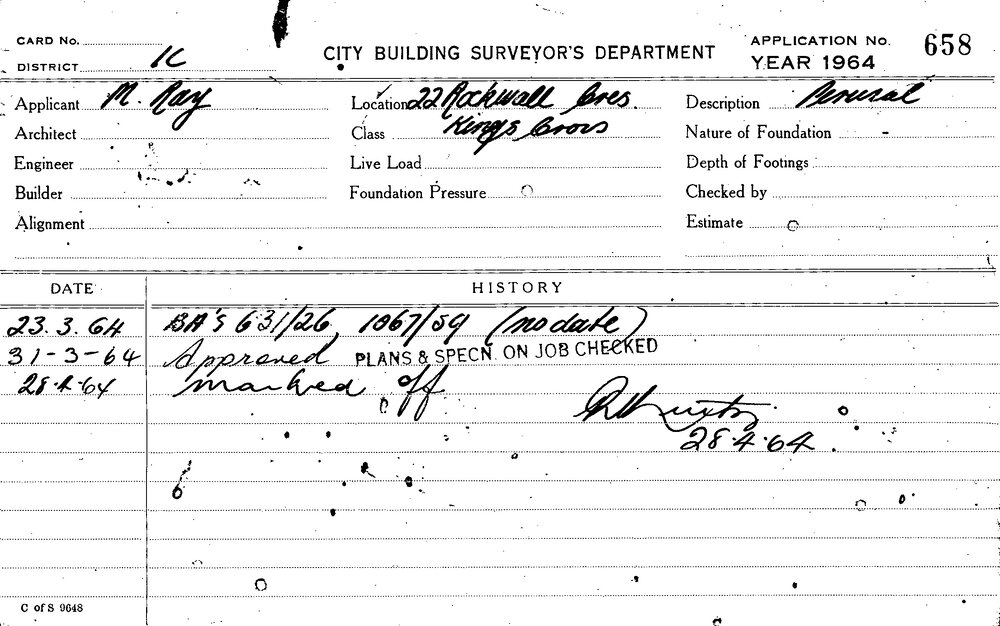 CARD No.
DISTRICT 1C
CITY BUILDING SURVEYOR'S DEPARTMENT
APPLICATION No. 658
YEAR 1964
Applicant M. Ray
Location 22 Rockwall Cres.
Description Perusal
Architect
Class Kings Cross
Nature of Foundation -
Engineer
Live Load
Depth of Footings
Builder
Foundation Pressure
Checked by
Alignment
Estimate
DATE HISTORY
23.3.64 BA's 631/26, 1067/59 (no date)
31-3-64 Approved PLANS & SPECN. ON JOB CHECKED
28-4-64 marked off
28.4.64.
C of S 9648